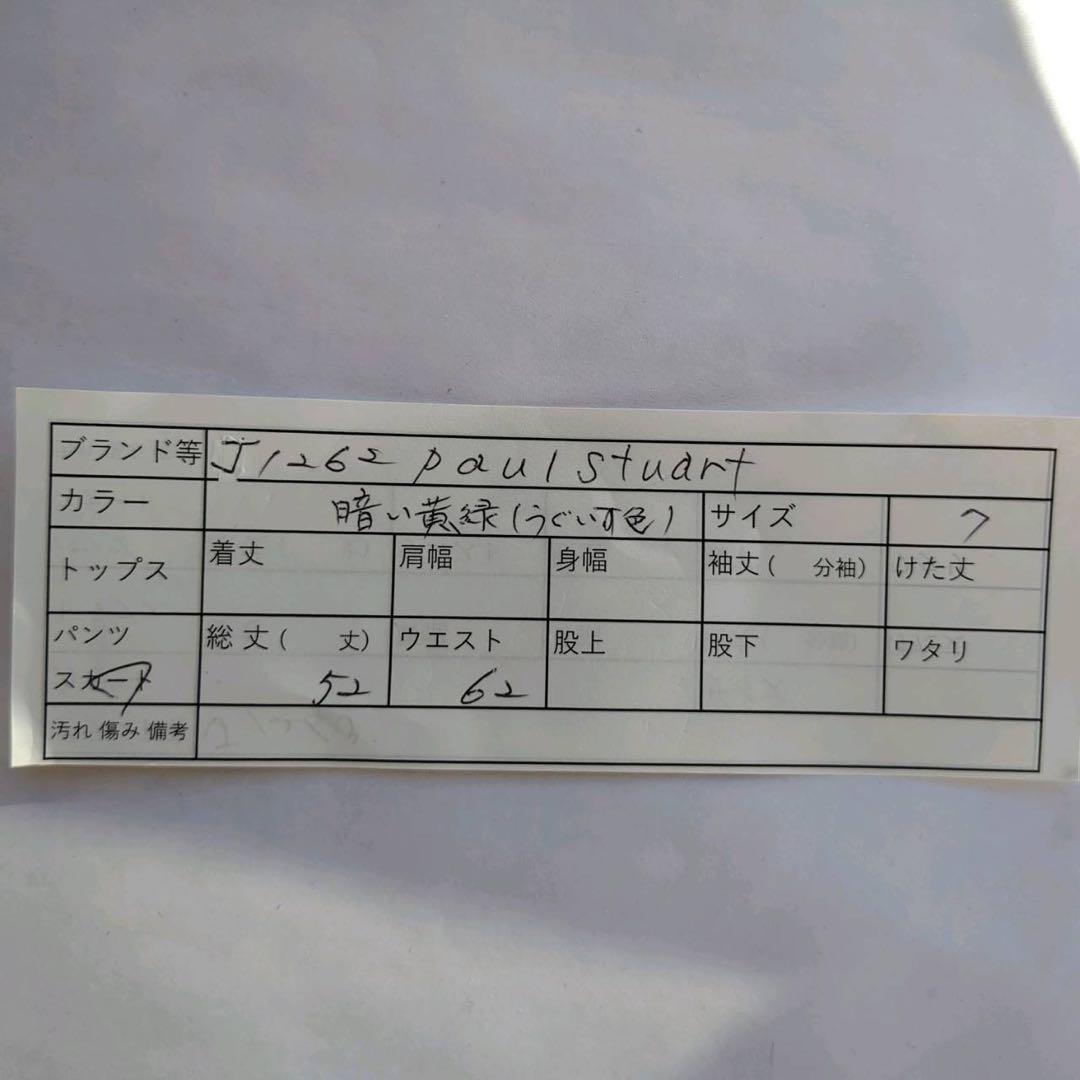 ブランド等 J1262 paul stuart
カラー 暗い黄緑(うぐいす色) サイズ 7
トップス 着丈 肩幅 身幅 袖丈( 分袖) けた丈
パンツ 総丈( 丈) ウエスト 股上 股下 ワタリ
スカート 52 62
汚れ 傷み 備考